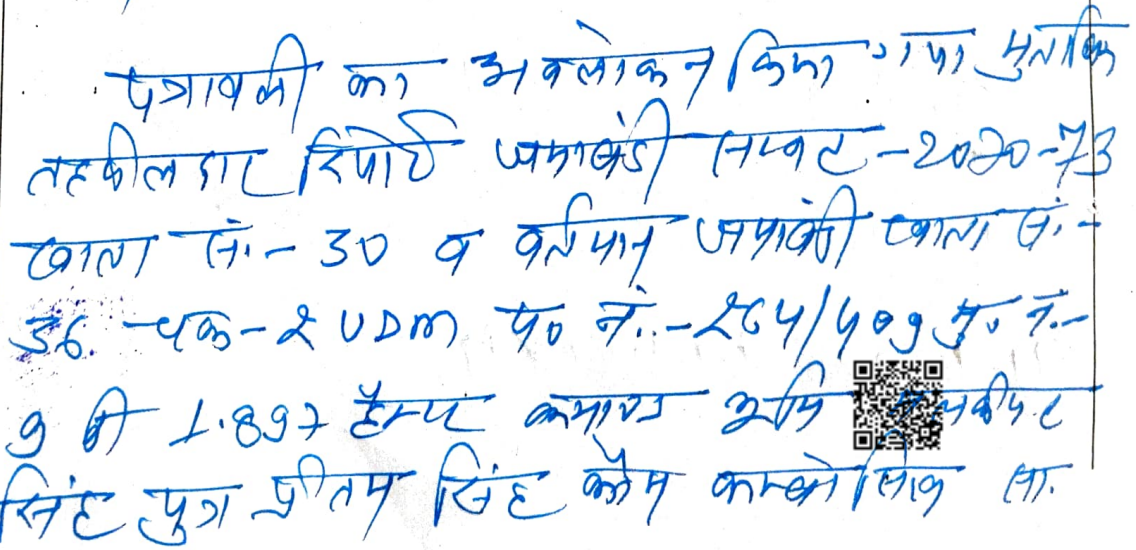 पत्रावली का अवलोकन किया गया मुताबिक
तहसीलदार रिपोर्ट जमाबंदी सम्वत - 2070-73
खाता सं.- 30 व वर्तमान जमाबंदी खाता सं.-
36 चक - 2 UDM प० नं.- 264/409 मु० नं.-
9 की 1.897 है० कमाण्ड भूमि
सिंह पुत्र प्रीतम सिंह कौम कम्बोसिख सा.